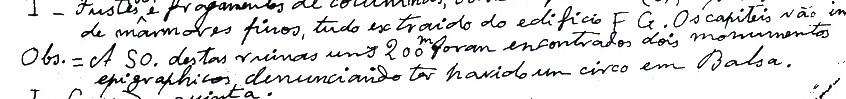 I - Fustes e fragmentos de columnas,
de mármores finos, tudo extraido do edificio F G. Os capiteis vão in
Obs. = A SO. destas ruinas uns 200m foram encontrados dois monumentos
epigraphicos, denunciando ter havido un circo em Balsa.